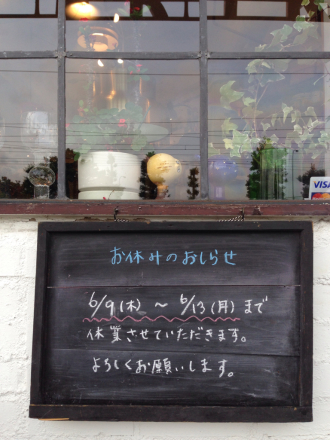 VISA
お休みのおしらせ
6/9(木)～6/13(月)まで
休業させていただきます。
よろしくお願いします。